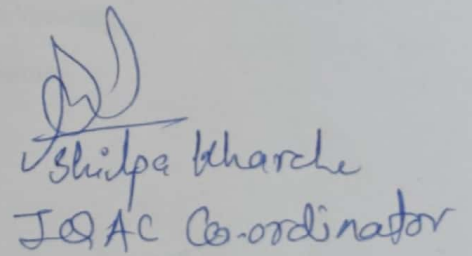 Shilpa Kharche
IQAC Co-ordinator